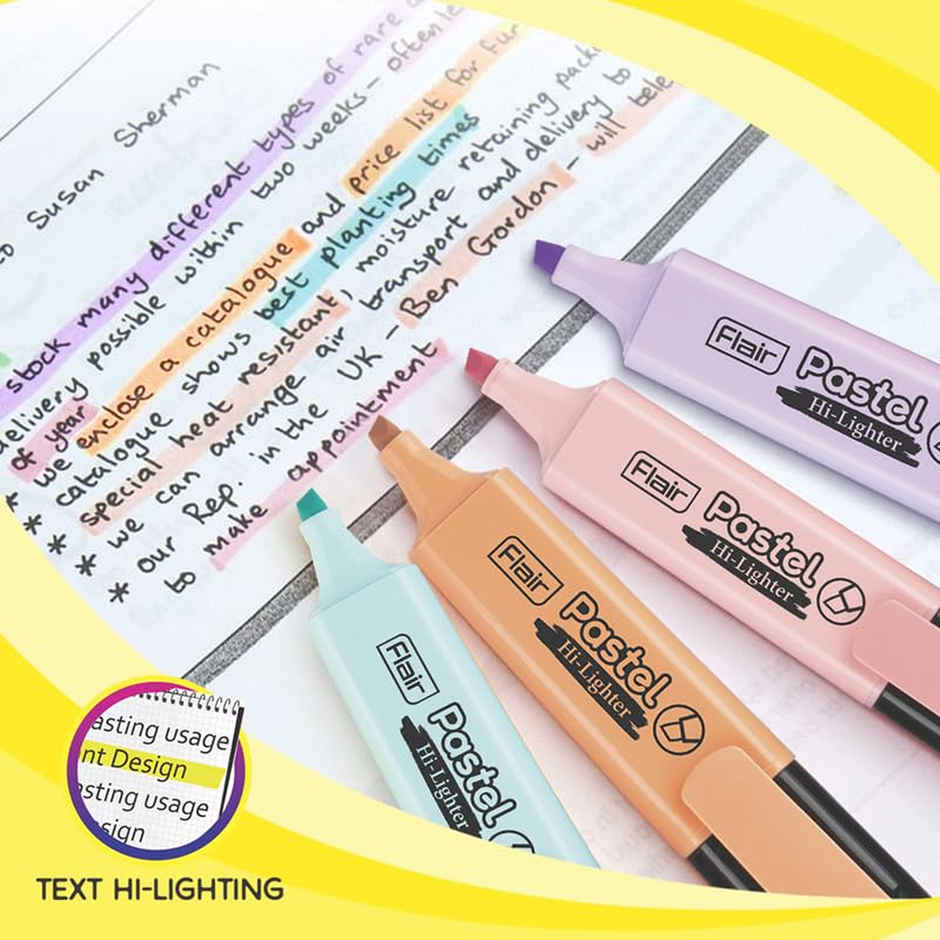 to Susan Sherman
stock many different types of rare
delivery possible within two weeks – often
of year
* we enclose a catalogue and price list for
* catalogue shows best planting times
special heat resistant, moisture retaining
* we can arrange air transport and delivery to
* our Rep. in the UK – Ben Gordon – will
to make appointment
Flair
Pastel
Hi-Lighter
Flair
Pastel
Hi-Lighter
Flair
Pastel
Hi-Lighter
Flair
Pastel
Hi-Lighter
asting usage
nt Design
asting usage
sign
TEXT HI-LIGHTING